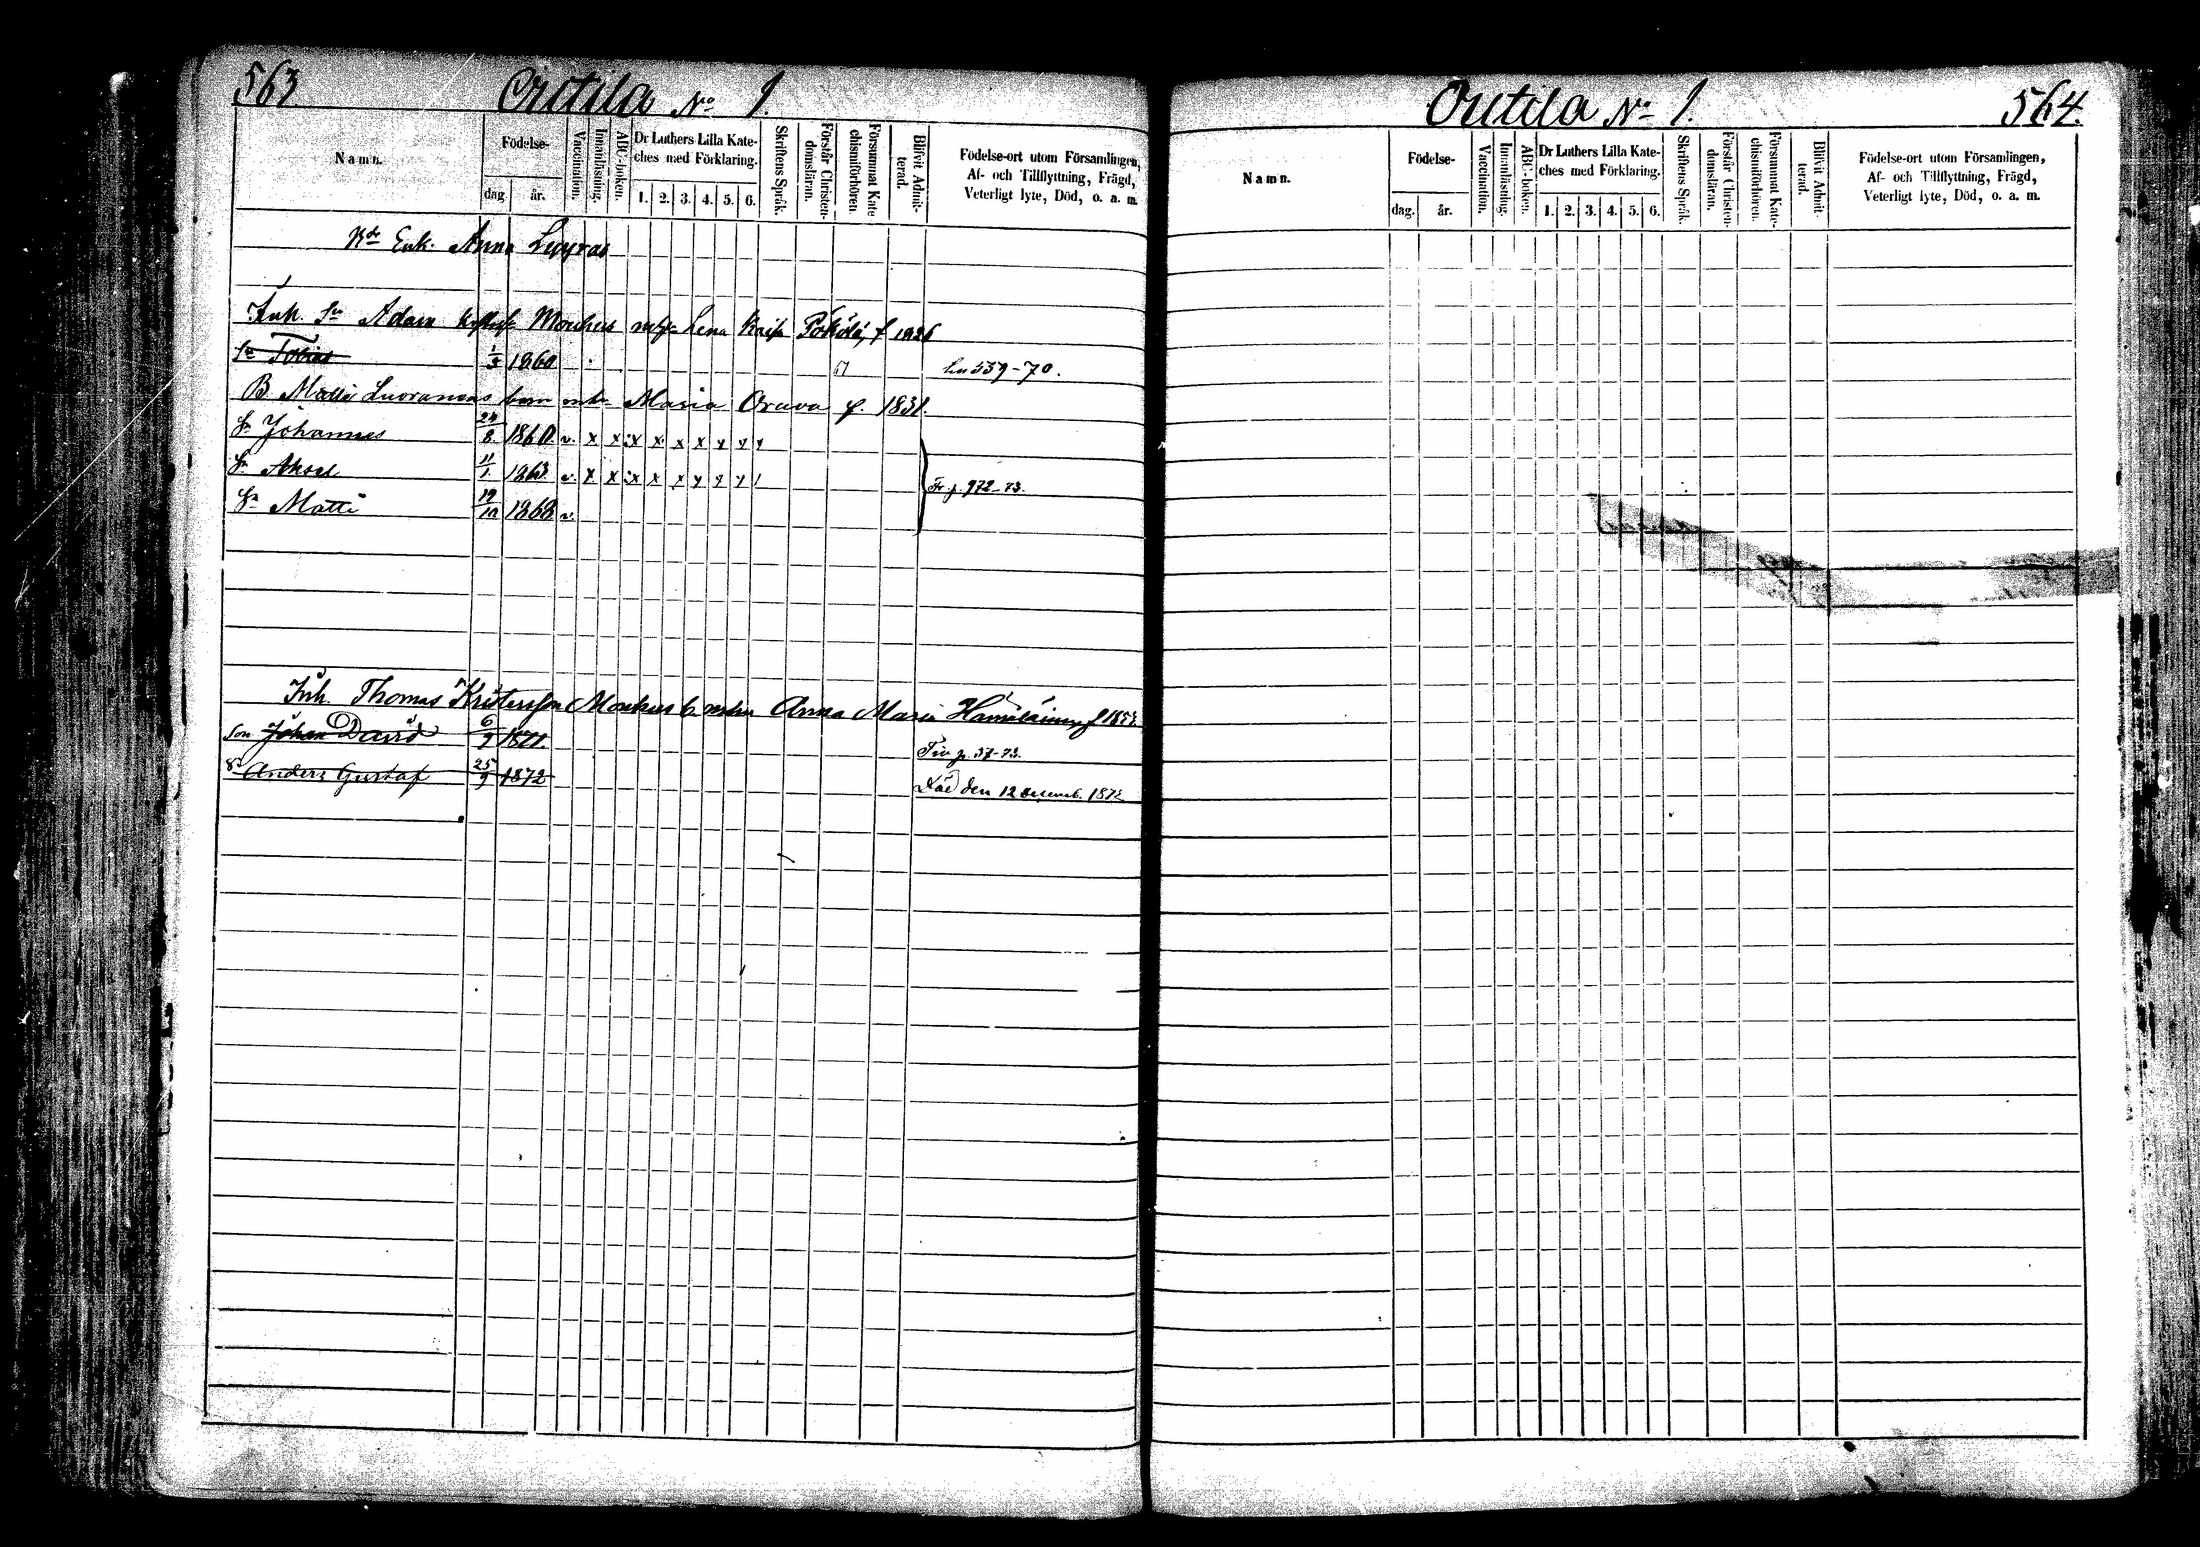 563
Outila No 1.
Namn.
Födelse-
dag.
år.
Vaccination.
Innanläsning.
ABC-boken.
Dr Luthers Lilla Kate-
ches med Förklaring.
1. 2. 3. 4. 5. 6.
Skriftens Språk.
Förstår Christen-
domsläran.
Försummat Kate
chismiförhören.
Blifvit Admit-
terad.
Födelse-ort utom Församlingen,
Af- och Tillflyttning, Frägd,
Veterligt lyte, Död, o. a. m.
Enk. Anna
Inh. Sn Adam Moukus Lena Kaisa f 1826
Sn Tobias 1/3 1860 559-70.
B. Matts Luoranens barn Maria Orava f. 1831.
Sn Johannes 24/8 1860 v. x x x x x x x x x
Sn Aksel 11/1 1863 v. x x x x x x x x x
Sn Matti 19/10 1868 v. Fr. p. 972-73.
Inh. Thomas Kristersson Moukus b. Anna Maria Hämäläinen f
Son Johan David 6/9 1871 p. 37-73.
Sn Anders Gustaf 25/9 1872 Död den 12 Decemb. 1872
Outila No 1.
564.
Namn.
Födelse-
dag.
år.
Vaccination.
Innanläsning.
ABC-boken.
Dr Luthers Lilla Kate-
ches med Förklaring.
1. 2. 3. 4. 5. 6.
Skriftens Språk.
Förstår Christen-
domsläran.
Försummat Kate-
chismiförhören.
Blifvit Admit-
terad.
Födelse-ort utom Församlingen,
Af- och Tillflyttning, Frägd,
Veterligt lyte, Död, o. a. m.